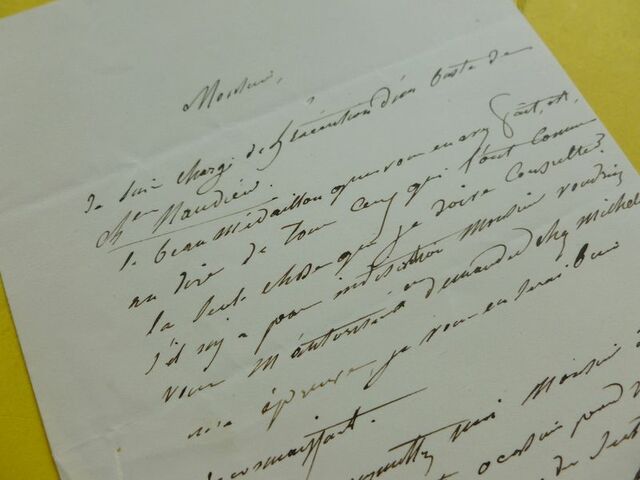 Monsieur,
Je suis chargé de l'exécution d'un buste de
Ch.en Naudien.
le beau médaillon que vous en avez fait, est,
au dire de tous ceux qui l'ont connu
la seule chose que je doive consulter
s'il n'y a pas indiscrétion Monsieur voudriez
vous m'autoriser en demander chez Michel
une épreuve, je vous en serai bien
reconnaissant.
Monsieur
occasion pour
de